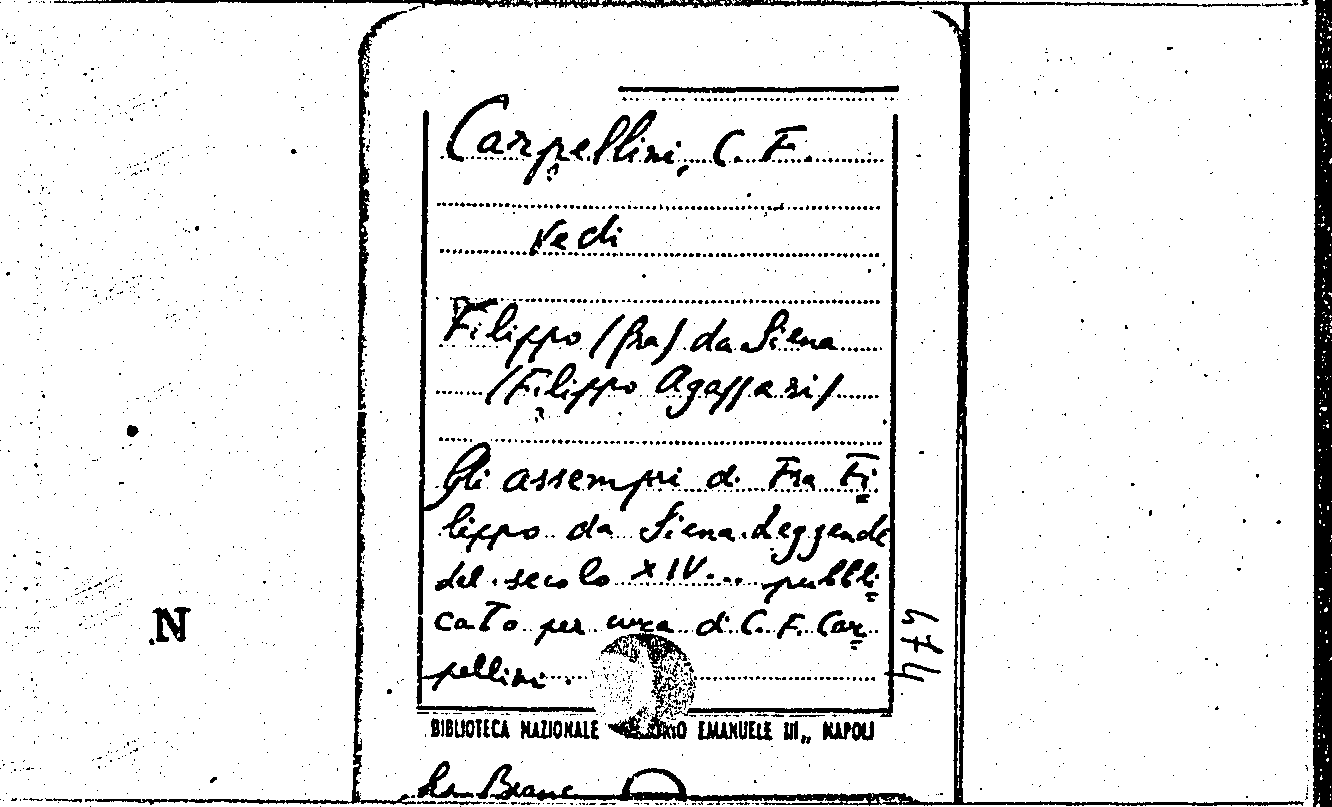 Carpellini, C. F.
Vedi
Filippo (fra) da Siena
(Filippo Agassari)
Gli assempri di Fra Fi=
lippo da Siena. Leggende
del secolo XIV... pubbli=
cato per cura di C. F. Car=
pellini.
N
BIBLIOTECA NAZIONALE EMANUELE III„ NAPOLI